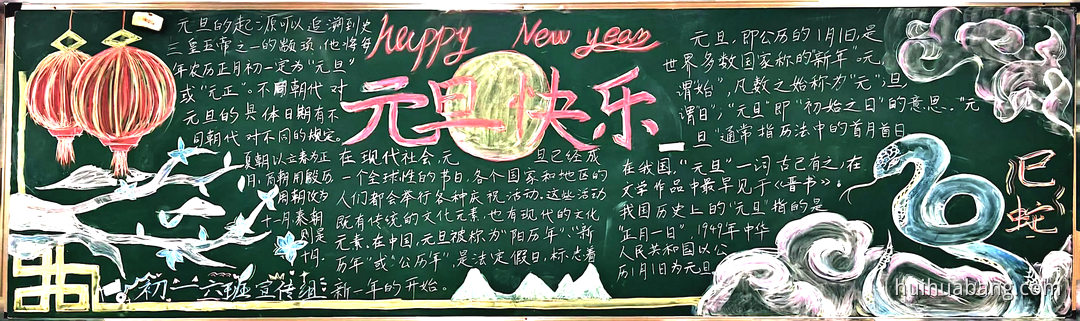 happy New year
元旦快乐
元旦的起源可以追溯到史
三皇五帝之一的颛顼,他将每
年农历正月初一定为“元旦”
或“元正”。不同朝代对
元旦的具体日期有不
同朝代对不同的规定。
夏朝以立春为正
月,商朝用殷历
周朝改为
十一月,秦朝
则是
十月.
在现代社会,元旦已经成
一个全球性的节日,各个国家和地区的
人们都会举行各种庆祝活动。这些活动
既有传统的文化元素,也有现代的文化
元素。在中国,元旦被称为“阳历年”、“新
历年”或“公历年”,是法定假日,标志着
新一年的开始。
元旦,即公历的1月1日,是
世界多数国家称的“新年”。元,
谓“始”,凡数之始称为“元”;旦,
谓“日”;“元旦”即“初始之日”的意思。“元
旦”通常指历法中的首月首日
在我国,“元旦”一词古已有之,在
文学作品中最早见于《晋书》。
我国历史上的“元旦”指的是
“正月一日”。1949年中华
人民共和国以公
历1月1日为元旦
巳蛇
初二六班宣传组:
huihuabang.com